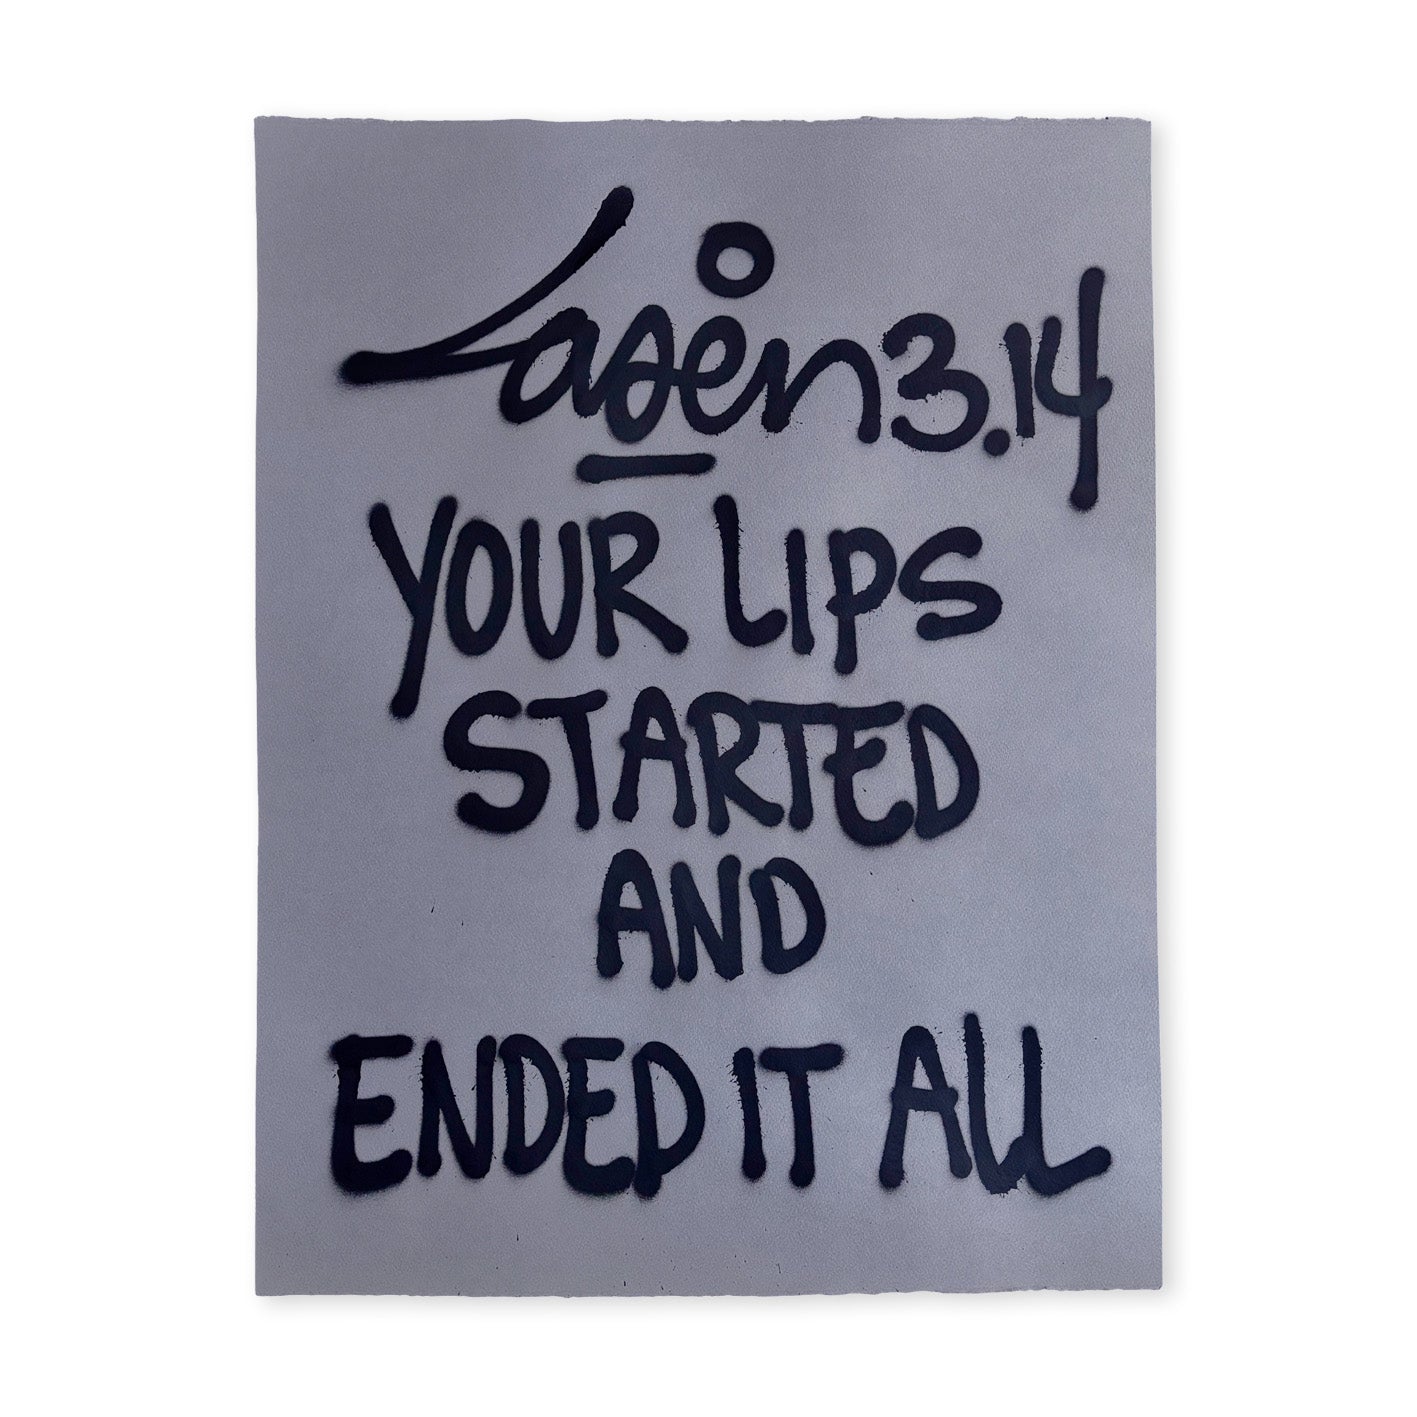 Laser 3.14
YOUR LIPS
STARTED
AND
ENDED IT ALL